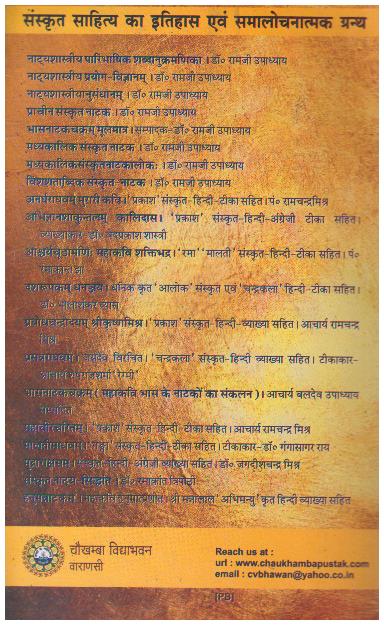 संस्कृत साहित्य का इतिहास एवं समालोचनात्मक ग्रन्थ
नाट्यशास्त्रीय पारिभाषिक शब्दानुक्रमणिका । डॉ० रामजी उपाध्याय
नाट्यशास्त्रीय प्रयोग-विज्ञानम् । डॉ० रामजी उपाध्याय
नाट्यशास्त्रीयानुसंधानम् । डॉ० रामजी उपाध्याय
प्राचीन संस्कृत नाटक । डॉ० रामजी उपाध्याय
भासनाटकचक्रम् मूलमात्र । सम्पादक-डॉ० रामजी उपाध्याय
मध्यकालिक संस्कृत नाटक । डॉ० रामजी उपाध्याय
मध्यकालिकसंस्कृतनाटकालोकः । डॉ० रामजी उपाध्याय
विंशशताब्दिक संस्कृत-नाटक । डॉ० रामजी उपाध्याय
अनर्घराघवम् मुरारीकवि। 'प्रकाश' संस्कृत-हिन्दी-टीका सहित। पं० रामचन्द्रमिश्र
अभिज्ञानशाकुन्तलम् कालिदास। 'प्रकाश' संस्कृत-हिन्दी-अंग्रेजी टीका सहित।
व्याख्याकार-डॉ० वेदप्रकाश शास्त्री
आश्चर्यचूडामणिः महाकवि शक्तिभद्र। ''रमा'' ''मालती'' संस्कृत-हिन्दी-टीका सहित। पं०
रमाकान्त झा
दशरूपकम् धनञ्जय। धनिक कृत 'आलोक' संस्कृत एवं 'चन्द्रकला' हिन्दी-टीका सहित।
डॉ० भोलाशंकर व्यास
प्रबोधचन्द्रोदयम् श्रीकृष्णमिश्र। 'प्रकाश' संस्कृत-हिन्दी-व्याख्या सहित। आचार्य रामचन्द्र
मिश्र
प्रसन्नराघवम्। जयदेव विरचित। 'चन्द्रकला' संस्कृत-हिन्दी व्याख्या सहित। टीकाकार-
आचार्य शेषराजशर्मा 'रेग्मी'
भासनाटकचक्रम् (महाकवि भास के नाटकों का संकलन)। आचार्य बलदेव उपाध्याय
सम्पादित
महावीरचरितम्। 'प्रकाश' संस्कृत-हिन्दी-टीका सहित। आचार्य रामचन्द्र मिश्र
मालतीमाधवम्। संस्कृत-हिन्दी-टीका सहित। टीकाकार-डॉ० गंगासागर राय
मुद्राराक्षसम्। संस्कृत-हिन्दी-अंग्रेजी व्याख्या सहित। डॉ० जगदीशचन्द्र मिश्र
संस्कृत नाट्य-सिद्धांत। डॉ० रमाकांत त्रिपाठी
हनुमन्नाटकम्। श्री मन्नालाल 'अभिमन्यु' कृत हिन्दी व्याख्या सहित
चौखम्बा विद्याभवन
वाराणसी
Reach us at :
url : www.chaukhambapustak.com
email : cvbhawan@yahoo.co.in
[PB]